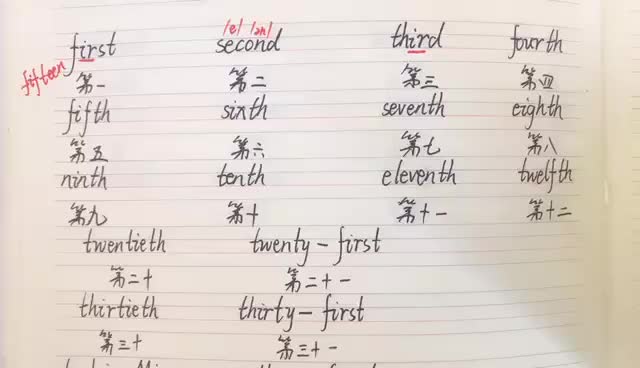 /e/ /ən/
first second third fourth
fifteen
第一 第二 第三 第四
fifth sixth seventh eighth
第五 第六 第七 第八
ninth tenth eleventh twelfth
第九 第十 第十一 第十二
twentieth twenty-first
第二十 第二十一
thirtieth thirty-first
第三十 第三十一